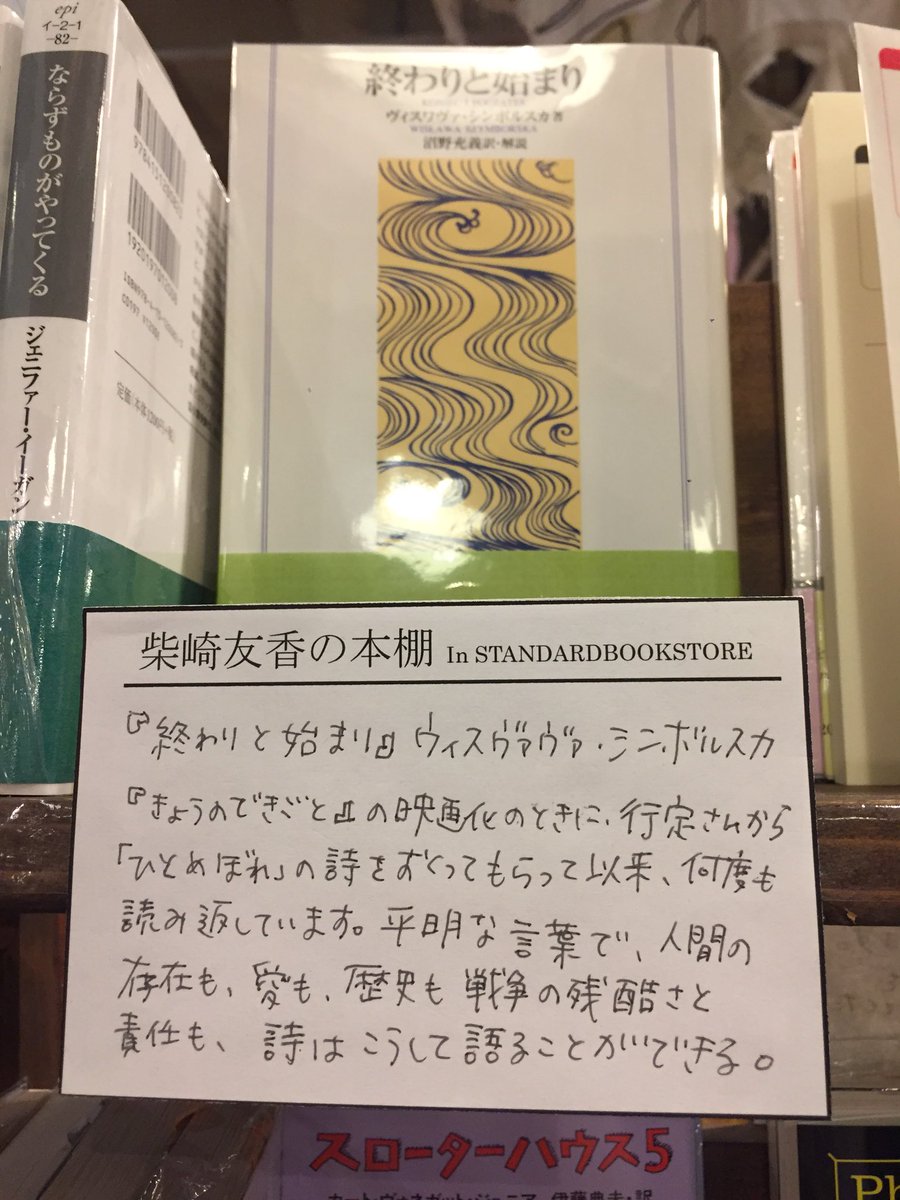 epi
イ-2-1
-82-
ならずものがやってくる
ジェニファー・イーガン
終わりと始まり
ヴィスワヴァ・シンボルスカ著
WISŁAWA SZYMBORSKA
沼野充義訳・解説
柴崎友香の本棚 In STANDARDBOOKSTORE
『終わりと始まり』ヴィスヴァヴァ・シンボルスカ
『きょうのできごと』の映画化のときに、行定さんから
「ひとめぼれ」の詩をおくってもらって以来、何度も
読み返しています。平明な言葉で、人間の
存在も、愛も、歴史も戦争の残酷さと
責任も、詩はこうして語ることができる。
スローターハウス5
カート・ヴォネガット・ジュニア 伊藤典夫・訳
Ph